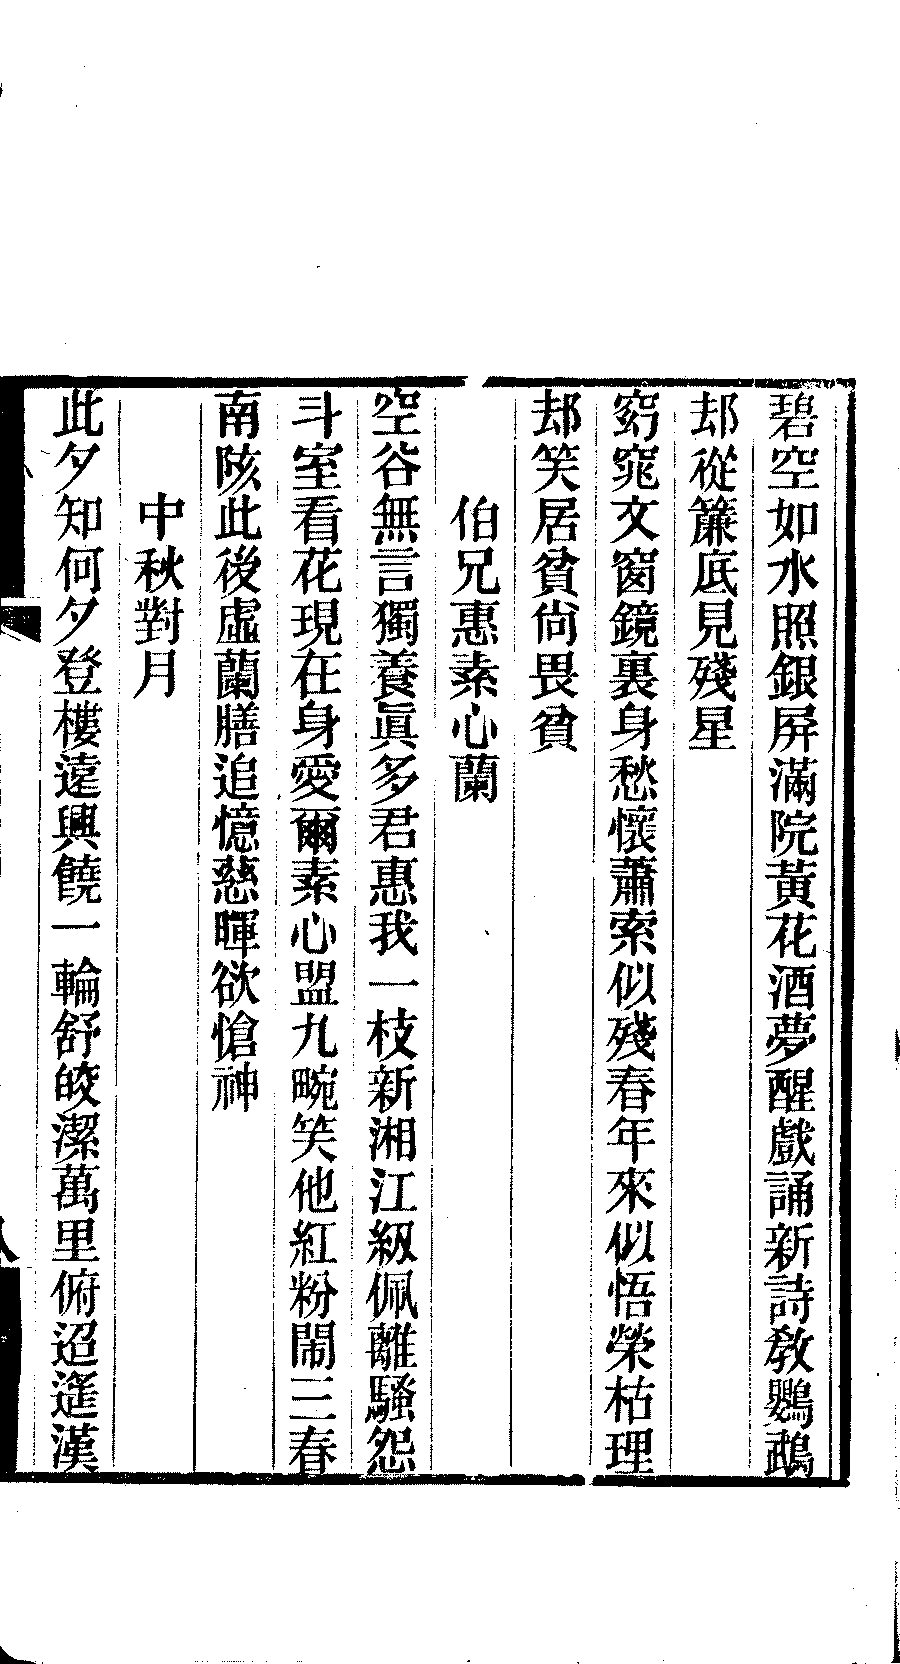 碧空如水照銀屏滿院黃花酒夢醒戲誦新詩教鸚鵡
却從簾底見殘星
窈窕文窗鏡裏身愁懷蕭索似殘春年來似悟榮枯理
却笑居貧尙畏貧
伯兄惠素心蘭
空谷無言獨養眞多君惠我一枝新湘江級佩離騷怨
斗室看花現在身愛爾素心盟九畹笑他紅粉鬧三春
南陔此後虛蘭膳追憶慈暉欲愴神
中秋對月
此夕知何夕登樓遠興饒一輪舒皎潔萬里俯迢遙漢